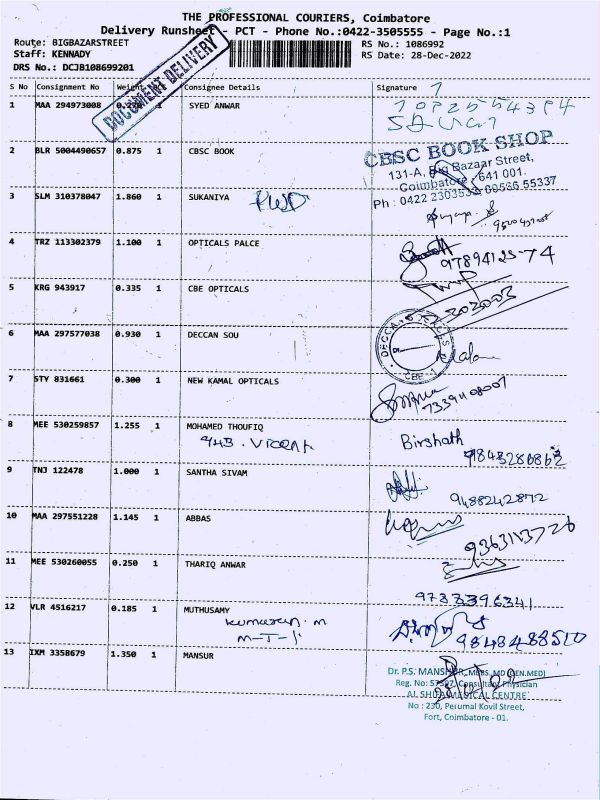 THE PROFESSIONAL COURIERS, Coimbatore
Delivery Runsheet - PCT - Phone No.:0422-3505555 - Page No.:1
Route: BIGBAZARSTREET
RS No.: 1086992
Staff: KENNADY
RS Date: 28-Dec-2022
DRS No.: DCJB108699201
DOCUMENT DELIVERY
S No Consignment No Weight PCS Consignee Details Signature
1 MAA 294973008 0.270 SYED ANWAR
2 BLR 5004490657 0.875 1 CBSC BOOK
CBSC BOOK SHOP
131-A, Big Bazaar Street,
Coimbatore 641 001.
Ph : 0422 55337
3 SLM 310378047 1.860 1 SUKANIYA
4 TRZ 113302379 1.100 1 OPTICALS PALCE
5 KRG 943917 0.335 1 CBE OPTICALS
303003
6 MAA 297577038 0.930 1 DECCAN SOU
CBE
7 STY 831661 0.300 1 NEW KAMAL OPTICALS
8 MEE 530259857 1.255 1 MOHAMED THOUFIQ
Birshath
9 TNJ 122478 1.000 1 SANTHA SIVAM
9488242872
10 MAA 297551228 1.145 1 ABBAS
11 MEE 530260055 0.250 1 THARIQ ANWAR
9733396341
12 VLR 4516217 0.185 1 MUTHUSAMY
kumaran. m
9848488510
13 IXM 3358679 1.350 1 MANSUR
Dr. P.S. MANSHUR, MBBS, MD (GEN.MED)
Reg. No: Consultant Physician
AL SHIFA MEDICAL CENTRE
No : 230, Perumal Kovil Street,
Fort, Coimbatore - 01.